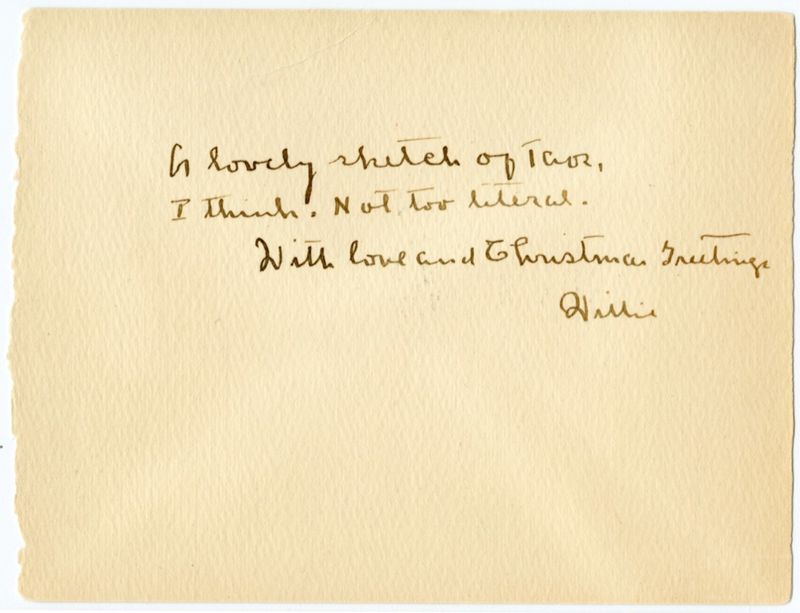 A lovely sketch of Taos,
I think. Not too literal.
With love and Christmas Greetings
Willie